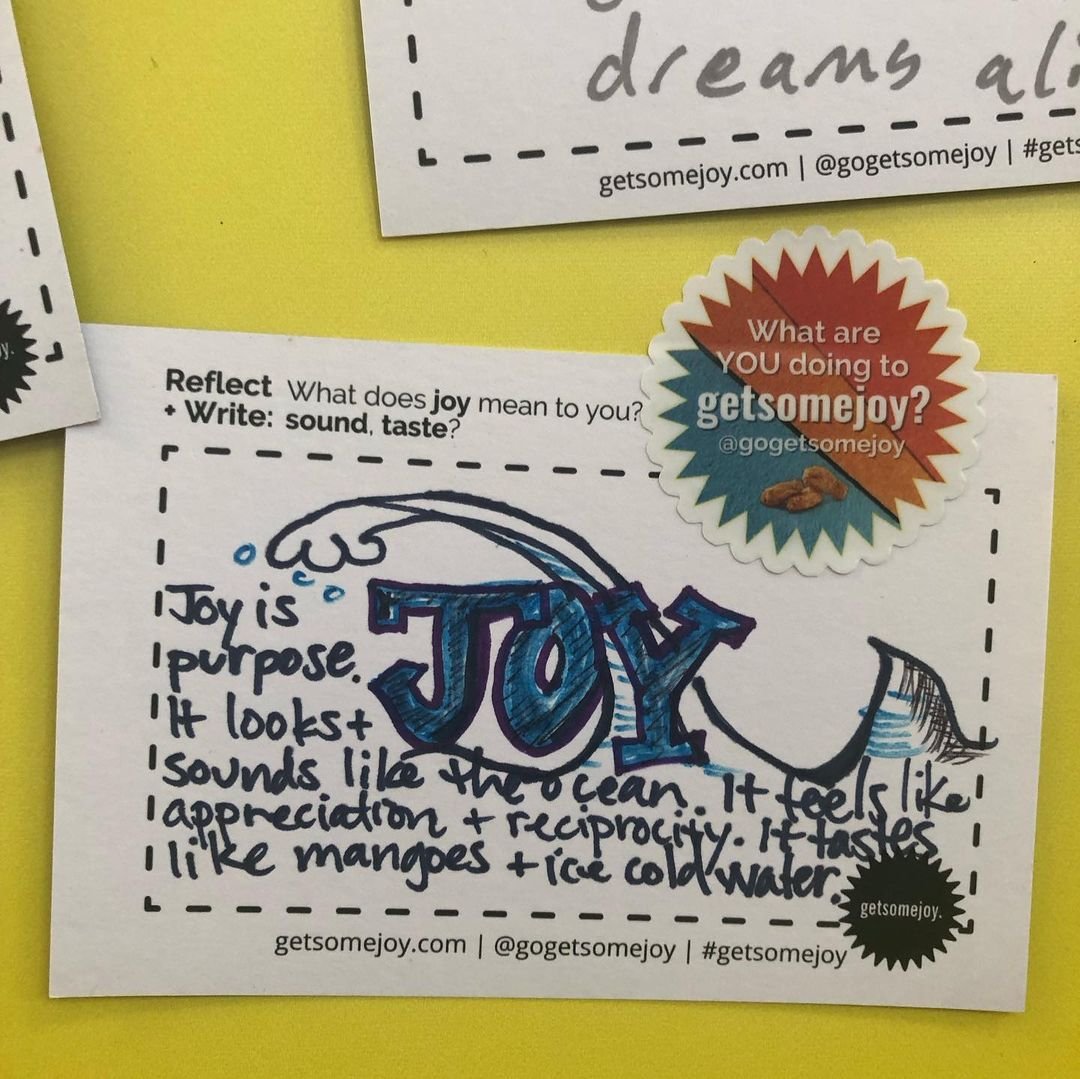 dreams
getsomejoy.com | @gogetsomejoy | #gets
y.
What are
YOU doing to
getsomejoy?
@gogetsomejoy
Reflect What does joy mean to you?
+ Write: sound, taste?
JOY
Joy is
purpose.
It looks +
sounds like the ocean. It feels like
appreciation + reciprocity. It tastes
like mangoes + ice cold water.
getsomejoy.
getsomejoy.com | @gogetsomejoy | #getsomejoy